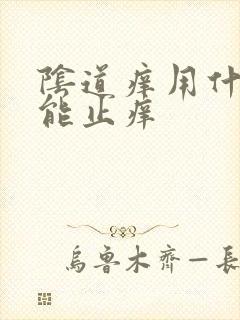 陰道痒用什
能止痒
烏魯木齊—長